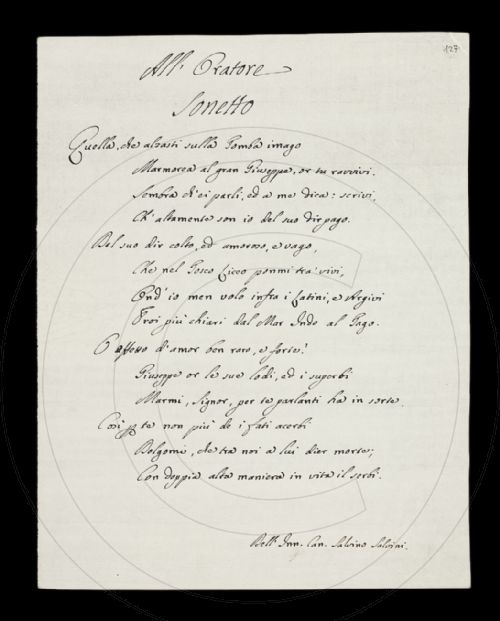 127
All' Oratore
Sonetto
Quella, che alzasti sulla Tomba imago
Marmorea al gran Giuseppe, or tu ravvivi.
Sembra ch'ei parli, ed a me dica: scrivi,
Ch'altamente son io del suo dir pago.
Del suo dir colto, ed amoroso, e vago,
Che nel Tosco Liceo ponmi tra' vivi,
Ond' io men volo infra i Latini, e Argivi
Eroi più chiari dal Mar Indo al Tago.
O effetto d'amor ben raro, e forte!
Giuseppe or le sue lodi, ed i superbi
Marmi, Signor, per te parlanti ha in sorte.
Così te non più de i fati acerbi
che tra noi a lui dier morte;
Con doppia alta maniera in vita il serbi.
Dell' Can. Salvino Salvini.